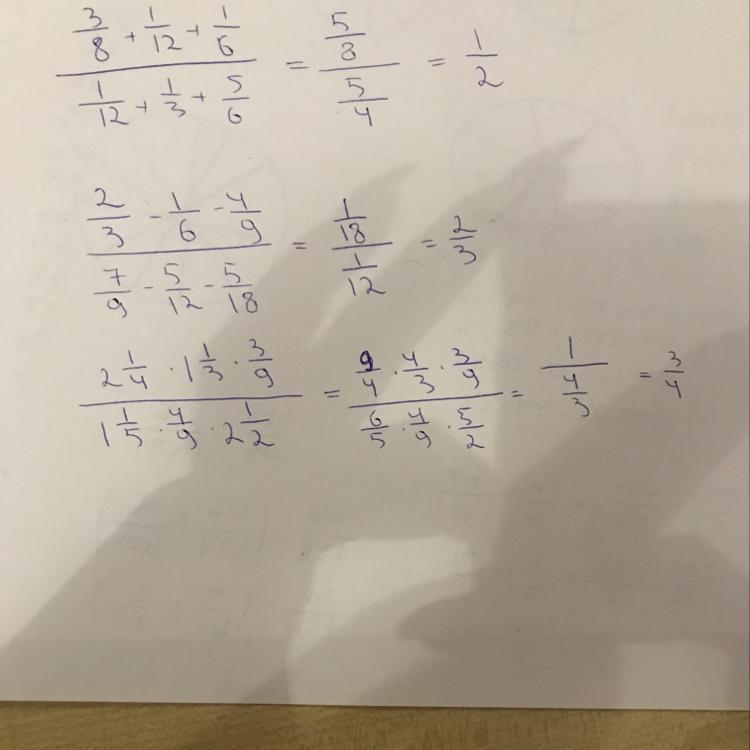 (3/8 + 1/12 + 1/6) / (1/12 + 1/3 + 5/6) = (5/8) / (5/4) = 1/2
(2/3 - 1/6 - 4/9) / (7/9 - 5/12 - 5/18) = (1/18) / (1/12) = 2/3
(2 1/4 · 1 1/3 · 3/9) / (1 1/5 · 4/9 · 2 1/2) = (9/4 · 4/3 · 3/9) / (6/5 · 4/9 · 5/2) = 1 / (4/3) = 3/4